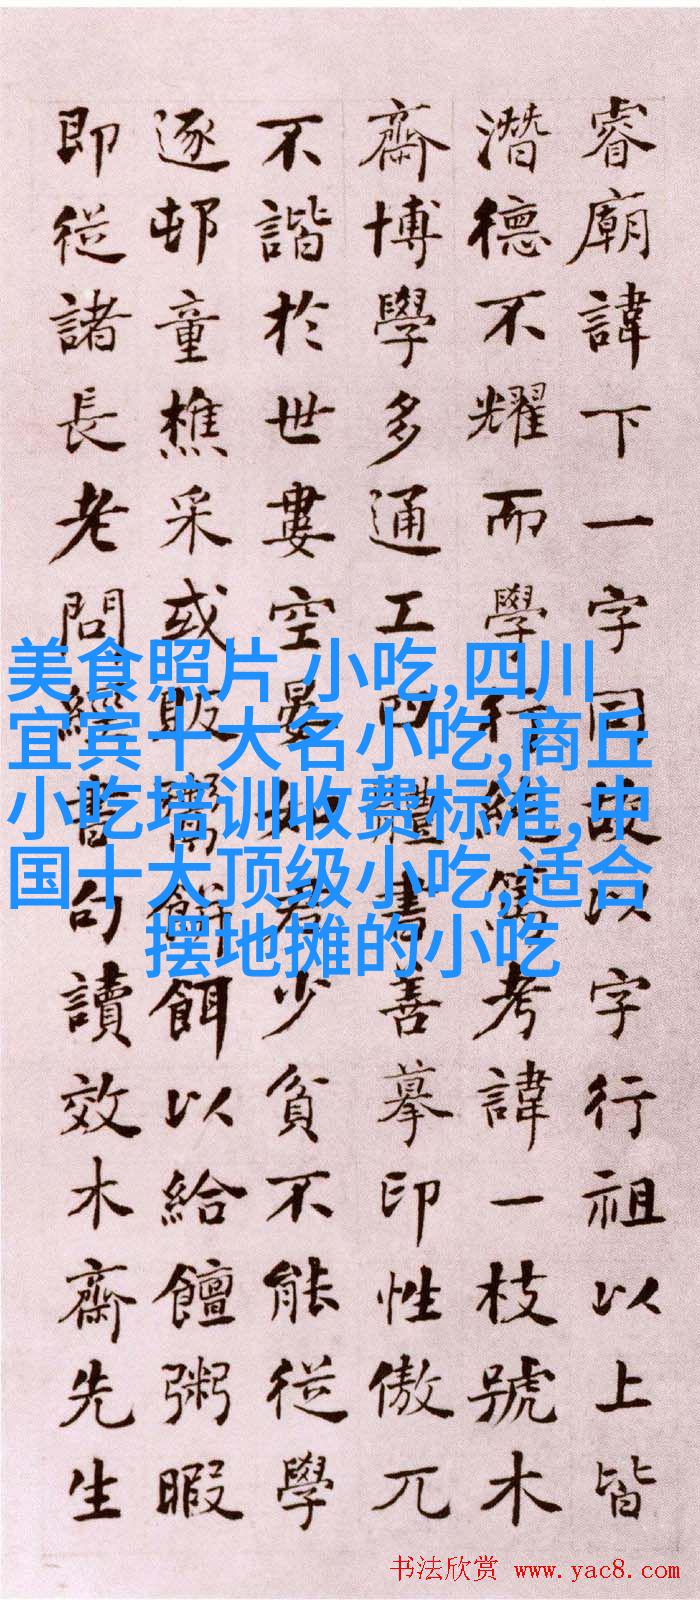 睿廟諱下一字同故以字行祖以上皆
潛德不耀而學行純篤考諱一枝號木
齋博學多通工四體書善摹印性傲兀
不諧於世婁空晏如君少貧不能從學
逐邨童樵采或販鬻餅餌以給饘粥暇
即從諸長老問經書句讀效木齋先生
美食照片 小吃,四川
宜宾十大名小吃,商丘
小吃培训收费标准,中
国十大顶级小吃,适合
摆地摊的小吃
书法欣赏 www.yac8.com